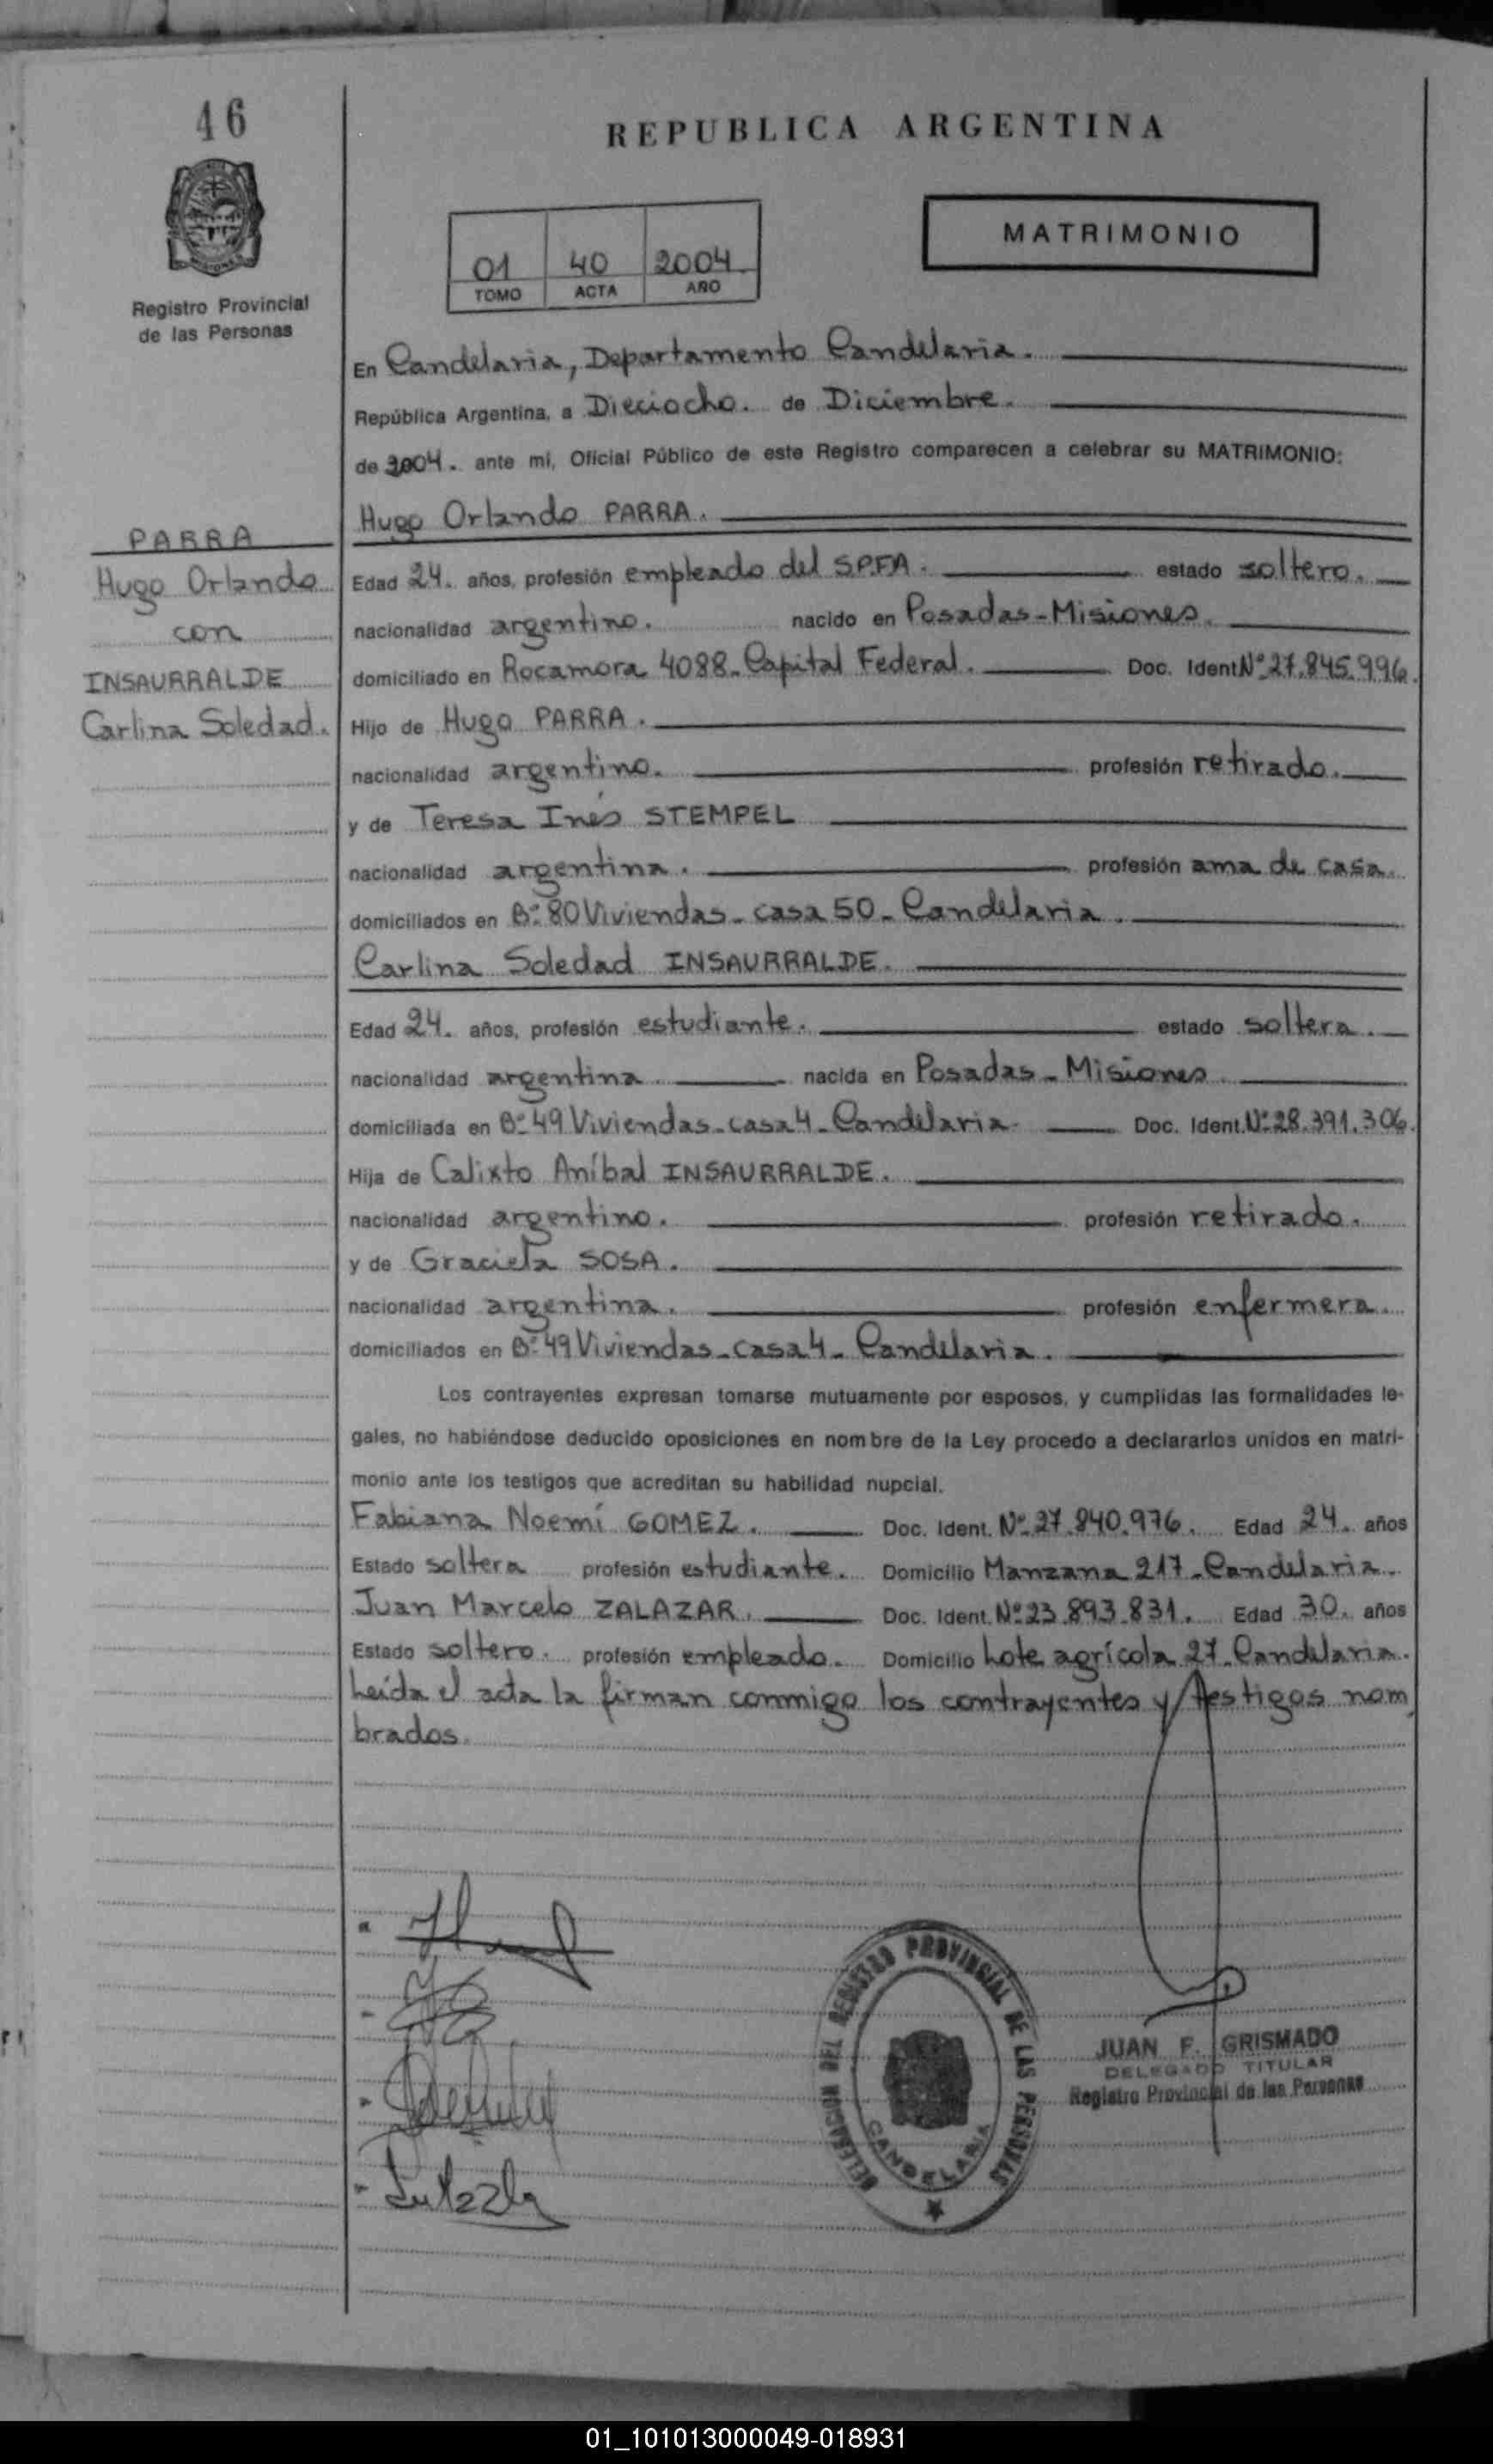 46
REPUBLICA ARGENTINA
MATRIMONIO
01 40 2004
TOMO ACTA AÑO
MISIONES
Registro Provincial
de las Personas
En Candelaria, Departamento Candelaria.
República Argentina, a Dieciocho. de Diciembre.
de 2004. ante mi, Oficial Público de este Registro comparecen a celebrar su MATRIMONIO:
Hugo Orlando PARRA.
PARRA
Hugo Orlando
con
INSAURRALDE
Carlina Soledad.
Edad 24. años, profesión empleado del S.P.F.A. estado soltero.
nacionalidad argentino. nacido en Posadas-Misiones.
domiciliado en Rocamora 4088-Capital Federal. Doc. Ident Nº27.845.996.
Hijo de Hugo PARRA.
nacionalidad argentino. profesión retirado.
y de Teresa Inés STEMPEL
nacionalidad argentina. profesión ama de casa.
domiciliados en Bº 80 Viviendas-casa 50-Candelaria.
Carlina Soledad INSAURRALDE.
Edad 24. años, profesión estudiante. estado soltera.
nacionalidad argentina. nacida en Posadas-Misiones.
domiciliada en Bº 49 Viviendas-casa 4-Candelaria- Doc. Ident. Nº 28.391.306.
Hija de Calixto Aníbal INSAURRALDE.
nacionalidad argentino. profesión retirado.
y de Graciela SOSA.
nacionalidad argentina. profesión enfermera.
domiciliados en Bº 49 Viviendas-casa 4-Candelaria.
Los contrayentes expresan tomarse mutuamente por esposos, y cumplidas las formalidades le-
gales, no habiéndose deducido oposiciones en nombre de la Ley procedo a declararlos unidos en matri-
monio ante los testigos que acreditan su habilidad nupcial.
Fabiana Noemí GOMEZ. Doc. Ident. Nº 27.840.976. Edad 24. años
Estado soltera profesión estudiante. Domicilio Manzana 217-Candelaria.
Juan Marcelo ZALAZAR. Doc. Ident. Nº 23.893.831. Edad 30. años
Estado soltero. profesión empleado. Domicilio Lote agrícola 27-Candelaria.
Leída el acta la firman conmigo los contrayentes y testigos nom
brados.
DELEGACION DEL REGISTRO PROVINCIAL DE LAS PERSONAS
CANDELARIA
JUAN F. GRISMADO
DELEGADO TITULAR
Registro Provincial de las Personas
01_101013000049-018931